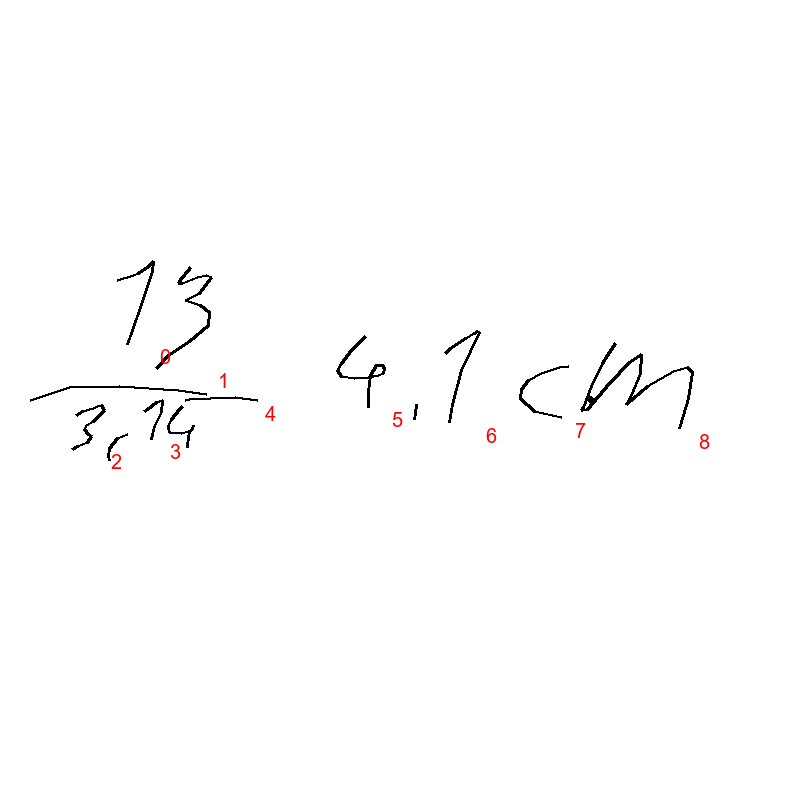 13
3,14
4,1 cm
0
1
2
3
4
5
6
7
8